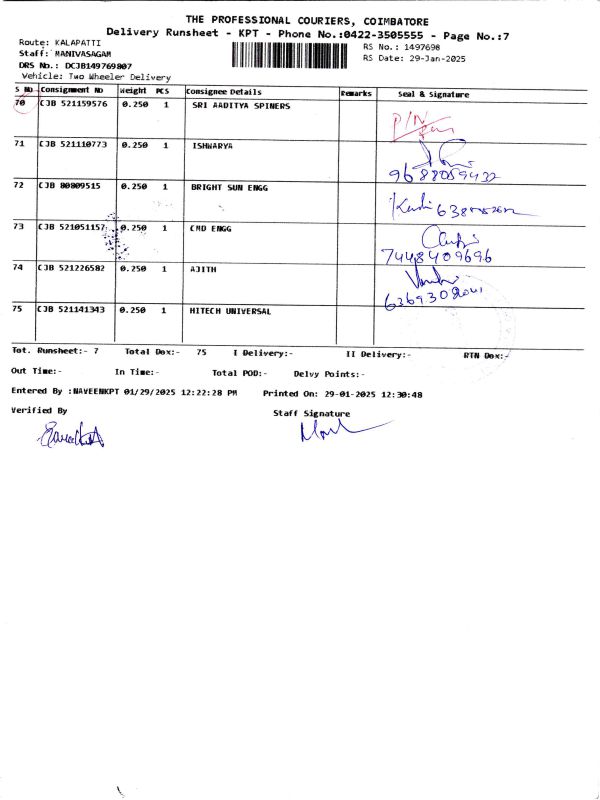 THE PROFESSIONAL COURIERS, COIMBATORE
Delivery Runsheet - KPT - Phone No.:0422-3505555 - Page No.:7
Route: KALAPATTI
Staff: MANIVASAGAM
DRS No.: DCJB149769807
Vehicle: Two Wheeler Delivery
RS No.: 1497698
RS Date: 29-Jan-2025
S NO Consignment No Weight PCS Consignee Details Remarks Seal & Signature
70 CJB 521159576 0.250 1 SRI AADITYA SPINERS P/N
71 CJB 521110773 0.250 1 ISHWARYA 9688059432
72 CJB 80809515 0.250 1 BRIGHT SUN ENGG
73 CJB 521051157 0.250 1 CMD ENGG 7448409696
74 CJB 521226582 0.250 1 AJITH
75 CJB 521141343 0.250 1 HITECH UNIVERSAL
Tot. Runsheet:- 7 Total Dox:- 75 I Delivery:- II Delivery:- RTN Dox:-
Out Time:- In Time:- Total POD:- Delvy Points:-
Entered By :NAVEENKPT 01/29/2025 12:22:28 PM Printed On: 29-01-2025 12:30:48
Verified By
Staff Signature